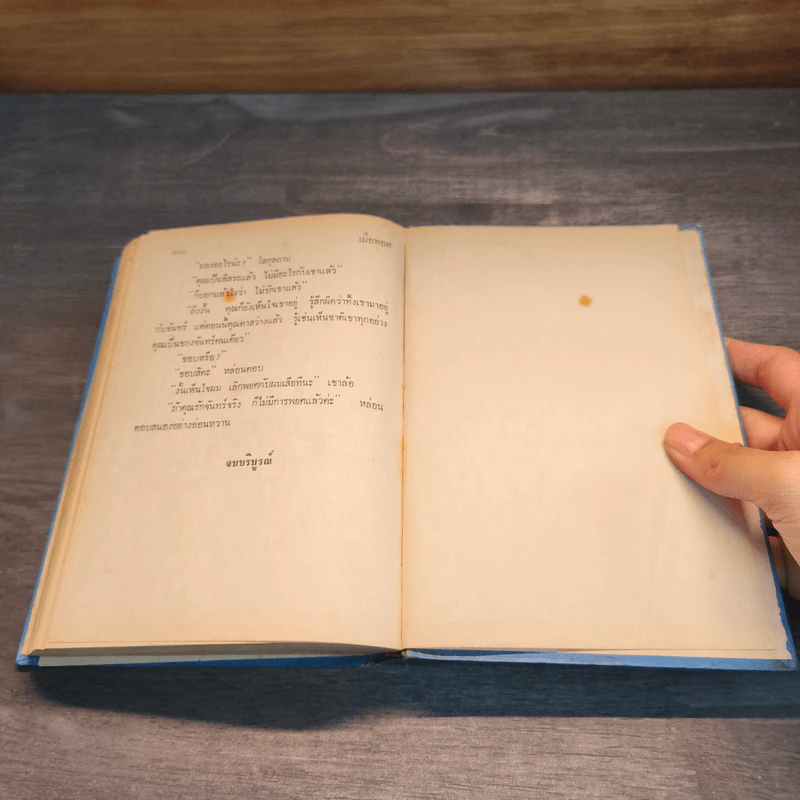 เมียพยศ
"มองอะไรน่ะ?" โสกุลถาม
"คุณเป็นอิสระแล้ว ไม่มีอะไรกับเขาแล้ว"
"ก็บอกแล้วไงว่า ไม่รักเขาแล้ว"
"ถึงงั้น คุณก็ยังเห็นใจเขาอยู่ รู้สึกผิดว่าทิ้งเขามาอยู่
กับจันทร์ แต่ตอนนี้คุณตาสว่างแล้ว รู้เช่นเห็นชาติเขาทุกอย่าง
คุณเป็นของจันทร์คนเดียว"
"ชอบหรือ?"
"ชอบสิคะ" หล่อนตอบ
"งั้นเห็นใจผม เลิกพยศกับผมเสียทีนะ" เขาล้อ
"ถ้าคุณรักจันทร์จริง ก็ไม่มีการพยศแล้วค่ะ" หล่อน
ตอบสนองอย่างอ่อนหวาน
จบบริบูรณ์